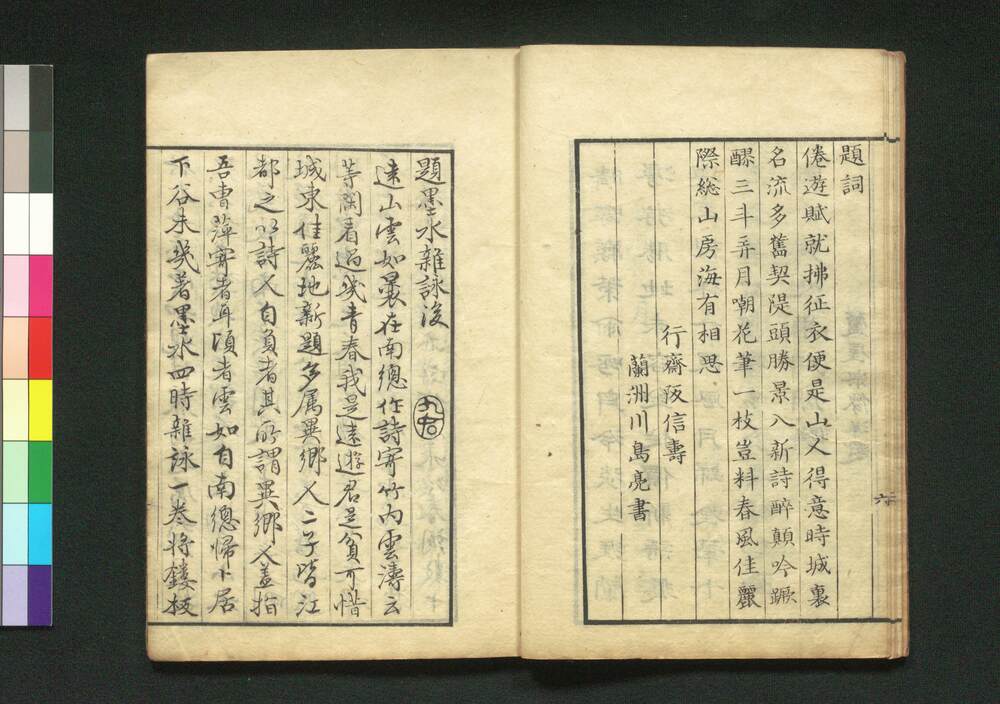 題詞
倦遊賦就拂征衣便是山人得意時城裏
名流多舊契隄頭勝景入新詩醉顛吟蹶
醪三斗弄月嘲花筆一枝豈料春風佳麗
際総山房海有相思
行齋阪信壽
蘭洲川島亮書
六
題墨水雜詠後
遠山雲如曩在南總作詩寄竹内雲濤云
等閑看過幾青春我是遠遊君是貧可惜
城東佳麗地新題多属異郷人二子皆江
都之以詩人自負者其所謂異郷人蓋指
吾曹萍寄者耳頃者雲如自南總帰卜居
下谷未幾著墨水四時雜詠一巻将鏤板